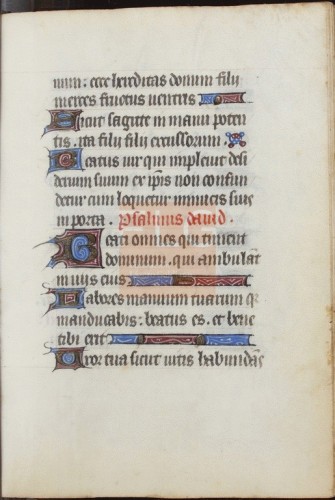 num: ecce hereditas domini filij
merces fructus uentris
Sicut sagitte in manu poten
tis. ita filij filij excussorum.
Beatus uir qui impleuit desi
derium suum ex ipis non confun
detur cum loquetur inimicis suis
in porta. Psalmus dauid.
Beati omnes qui timent
dominum. qui ambulāt
in uijs eius
Labores manuum tuarum q̄
manducabis: beatus es. et bene
tibi erit
Uxor tua sicut uitis habundās